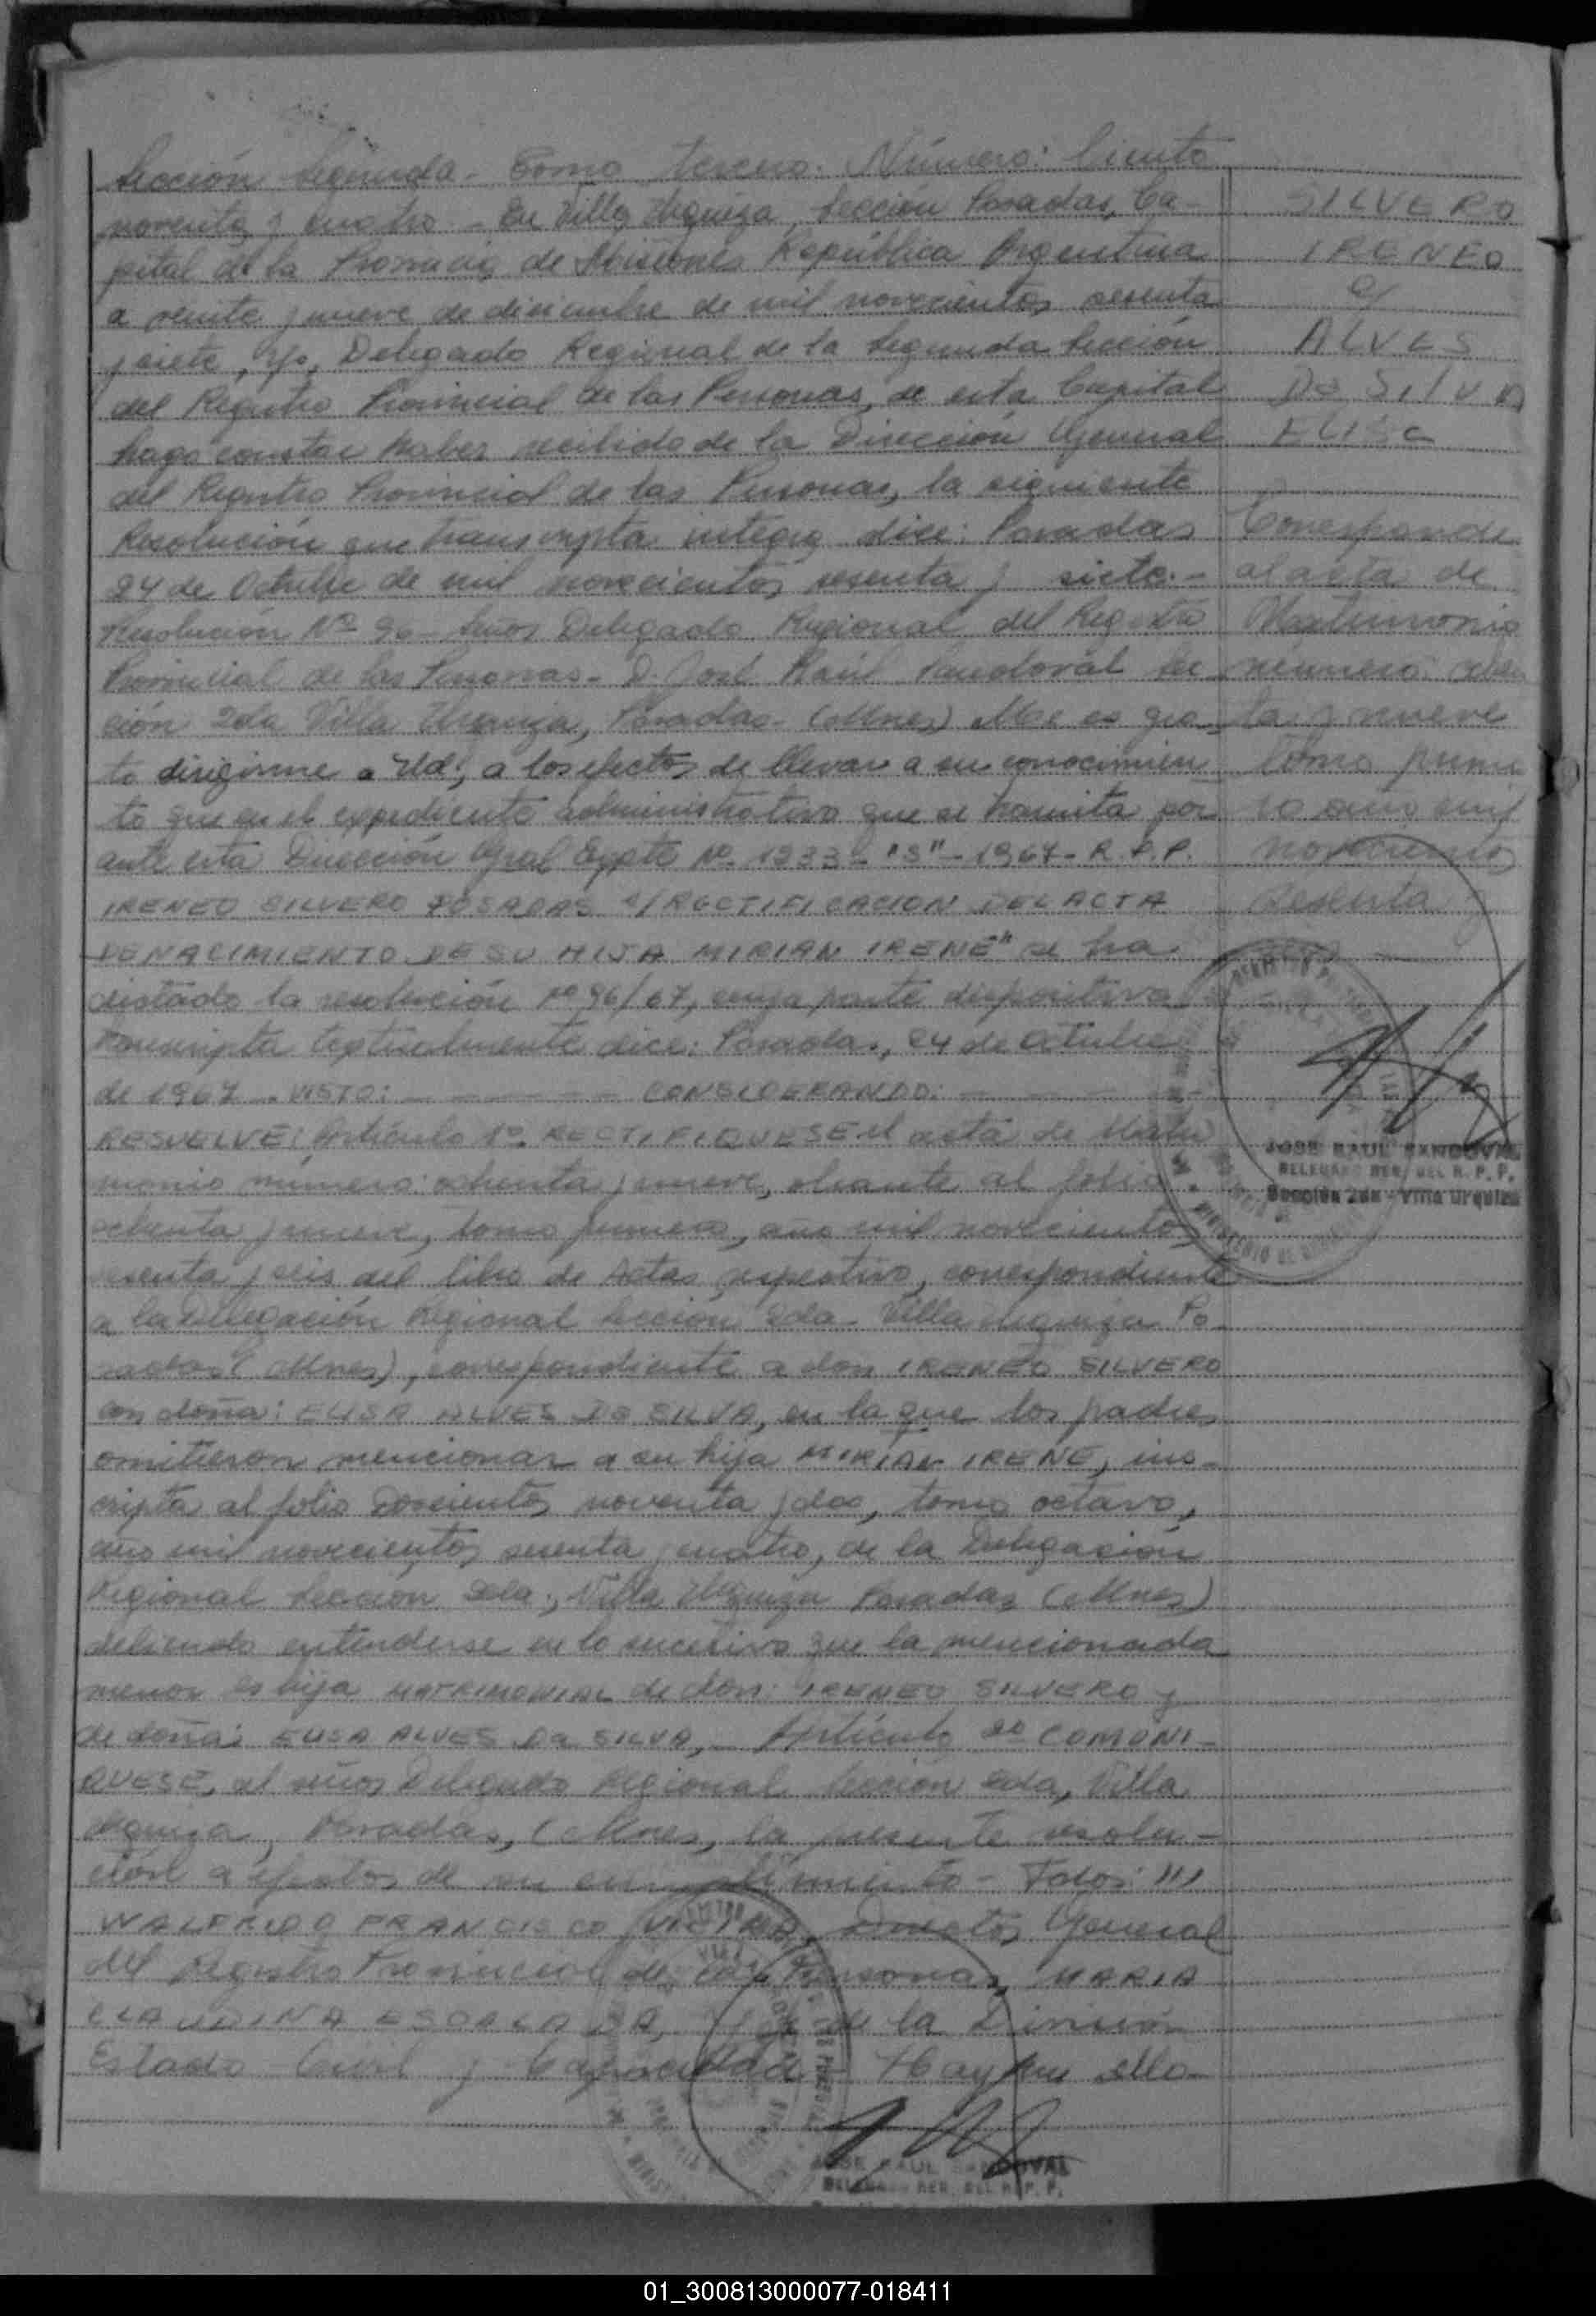 Sección Segunda - Tomo tercero. Número: Ciento
noventa y cuatro - En Villa Urquiza, Sección Posadas, Ca-
pital de la Provincia de Misiones República Argentina
a veinte y nueve de diciembre de mil novecientos sesenta
y siete, Yo, Delegado Regional de la Segunda Sección
del Registro Provincial de las Personas, de esta Capital
hago constar haber recibido de la Dirección General
del Registro Provincial de las Personas, la siguiente
Resolución que transcripta integra dice: Posadas
24 de Octubre de mil novecientos sesenta y siete.-
Resolución Nº 96 - Señor Delegado Regional del Registro
Provincial de las Personas - D. José Raúl Sandoval Sec
ción 2da Villa Urquiza, Posadas - (Mnes) Me es gra
to dirigirme a Ud; a los efectos de llevar a su conocimien
to que en el expediente administrativo que se tramita por
ante esta Dirección Gral Expte Nº 1933 - "S" - 1967 - R.P.P.
IRENEO SILVERO POSADAS s/RECTIFICACION DEL ACTA
DE NACIMIENTO DE SU HIJA MIRIAN IRENE" se ha
dictado la resolución Nº 96/67, cuya parte dispositiva
transcripta textualmente dice: Posadas, 24 de Octubre
de 1967 - VISTO: - - - - - CONSIDERANDO: - - - - -
RESUELVE: Artículo 1º RECTIFIQUESE el acta de Matri
monio número: ochenta y nueve, obrante al folio
ochenta y nueve, tomo primero, año mil novecientos
sesenta y seis del libro de Actas respectivo, correspondiente
a la Delegación Regional Sección 2da - Villa Urquiza Po
sadas (Mnes), correspondiente a don IRENEO SILVERO
con doña: ELISA ALVES DA SILVA, en la que los padres
omitieron mencionar a su hija MIRIAN IRENE, ins-
cripta al folio Doscientos noventa y dos, tomo octavo,
año mil novecientos sesenta y cuatro, de la Delegación
Regional Sección 2da; Villa Urquiza Posadas (Mnes)
debiendo entenderse en lo sucesivo que la mencionada
menor es hija MATRIMONIAL de don: IRENEO SILVERO y
de doña: ELISA ALVES DA SILVA, - Artículo 2º COMUNI-
QUESE, al señor Delegado Regional Sección 2da, Villa
Urquiza, Posadas, (Mnes, la presente resolu-
ción a efectos de su cumplimiento - Fdos: ///
WALFRIDO FRANCISCO Director General
del Registro Provincial de las Personas, MARIA
CLAUDINA ESCALADA, Jefe de la División
Estado Civil y Capacidad - Hay un sello-
SILVERO
IRENEO
c/
ALVES
DA SILVA
ELISA
Corresponde
al acta de
Matrimonio
número: ochen
ta y nueve
tomo prime
ro año mil
novecientos
sesenta y
JOSE RAUL SANDOVAL
DELEGADO REG. DEL R. P. P.
Sección 2da - Villa Urquiza
JOSE RAUL SANDOVAL
DELEGADO REG. DEL R. P. P.
01_300813000077-018411